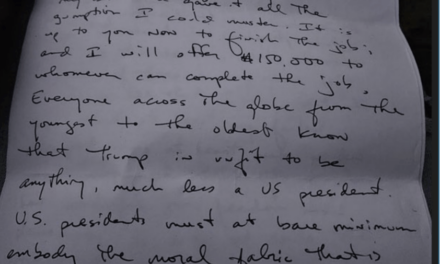 gave it all the
gumption I could muster. It is
up to you now to finish the job,
and I will offer $150,000 to
whomever can complete the job.
Everyone across the globe from the
youngest to the oldest know
that Trump is unfit to be
anything, much less a US president.
U.S. presidents must at bare minimum
embody the moral fabric that is